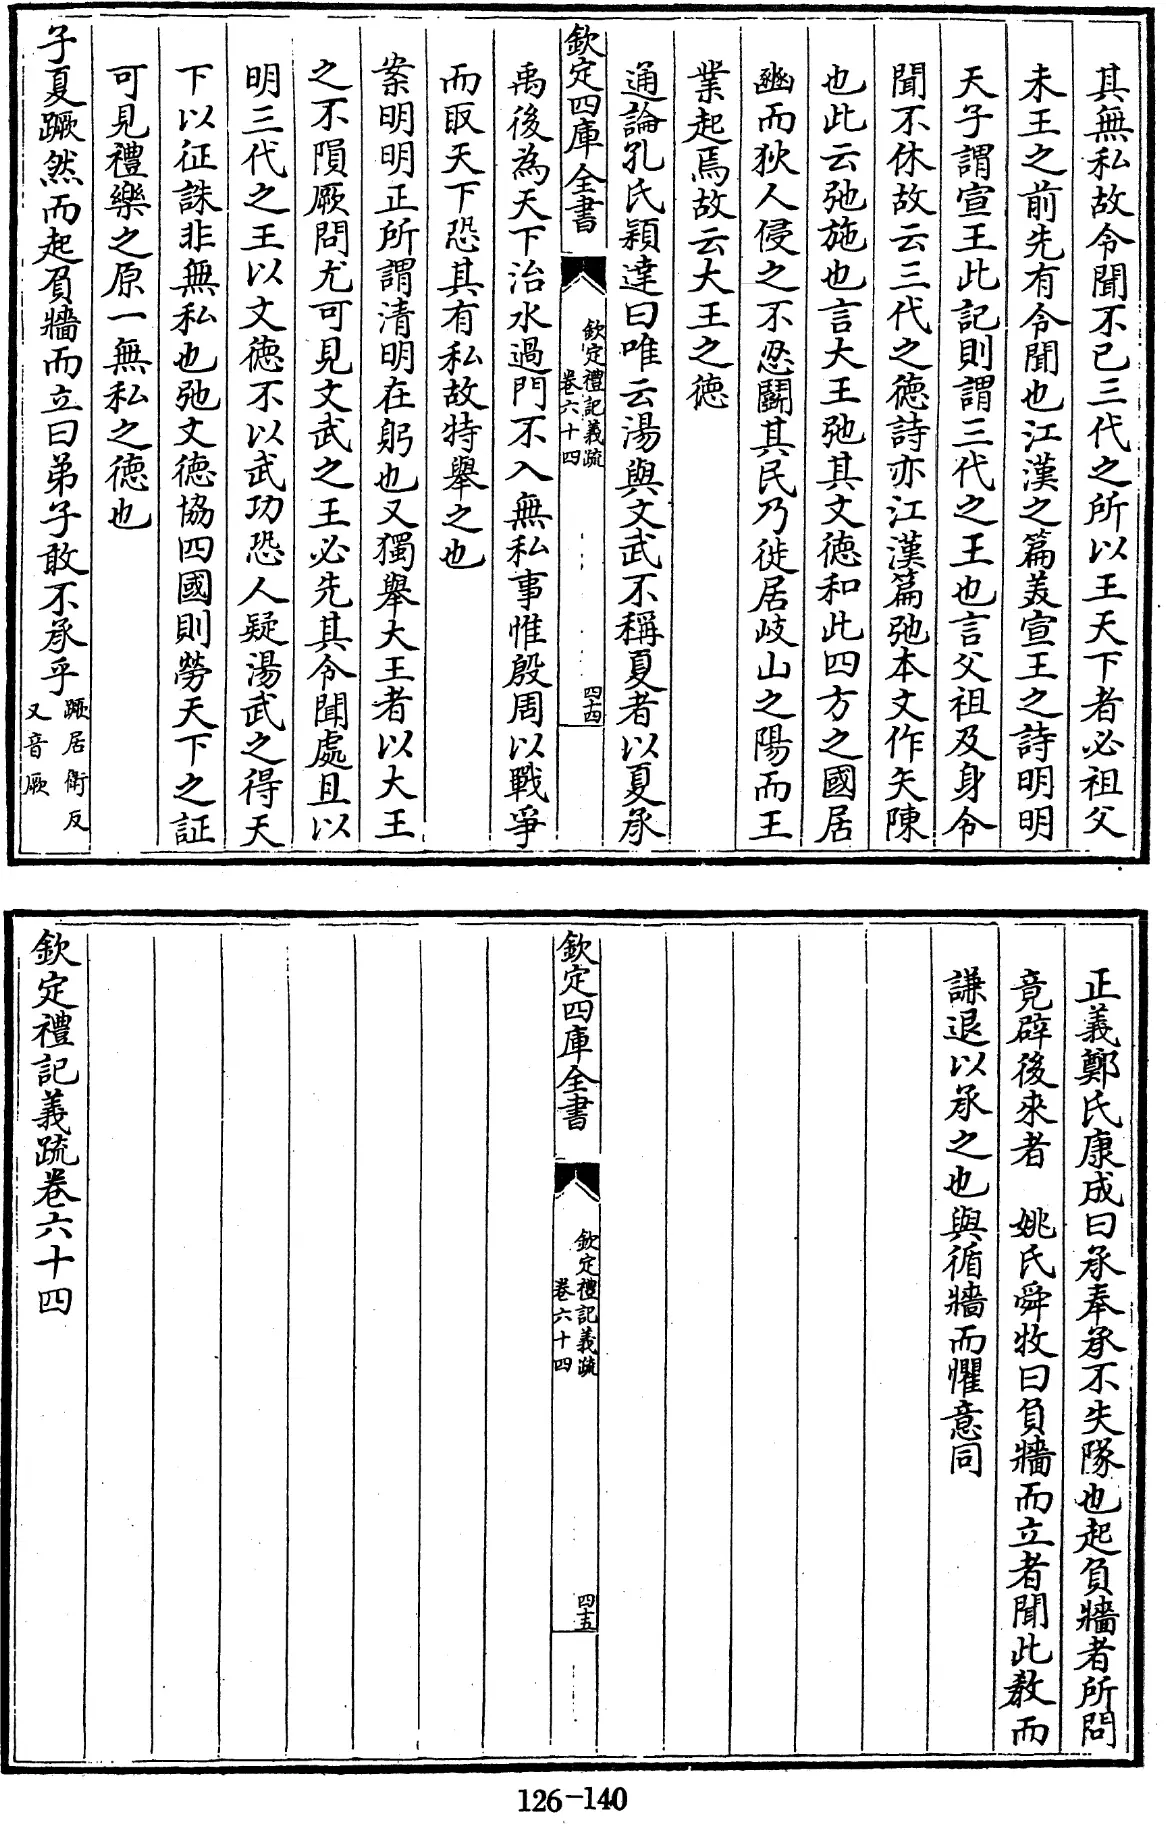 其無私故令聞不已三代之所以王天下者必祖父
未王之前先有令聞也江漢之篇美宣王之詩明明
天子謂宣王此記則謂三代之王也言父祖及身令
聞不休故云三代之德詩亦江漢篇弛本文作矢陳
也此云弛施也言大王弛其文德和此四方之國居
豳而狄人侵之不忍鬭其民乃徙居岐山之陽而王
業起焉故云大王之德
通論孔氏穎達曰唯云湯與文武不稱夏者以夏承
欽定四庫全書
欽定禮記義疏
卷六十四
四十四
禹後為天下治水過門不入無私事惟殷周以戰爭
而取天下恐其有私故特舉之也
案明明正所謂清明在躬也又獨舉大王者以大王
之不隕厥問尤可見文武之王必先其令聞處且以
明三代之王以文德不以武功恐人疑湯武之得天
下以征誅非無私也弛文德協四國則勞天下之証
可見禮樂之原一無私之德也
子夏蹶然而起負牆而立曰弟子敢不承乎蹶居衛反
又音厥
正義鄭氏康成曰承奉承不失隊也起負牆者所問
竟辟後來者 姚氏舜牧曰負牆而立者聞此教而
謙退以承之也與循牆而懼意同
欽定四庫全書
欽定禮記義疏
卷六十四
四十五
欽定禮記義疏卷六十四
126-140